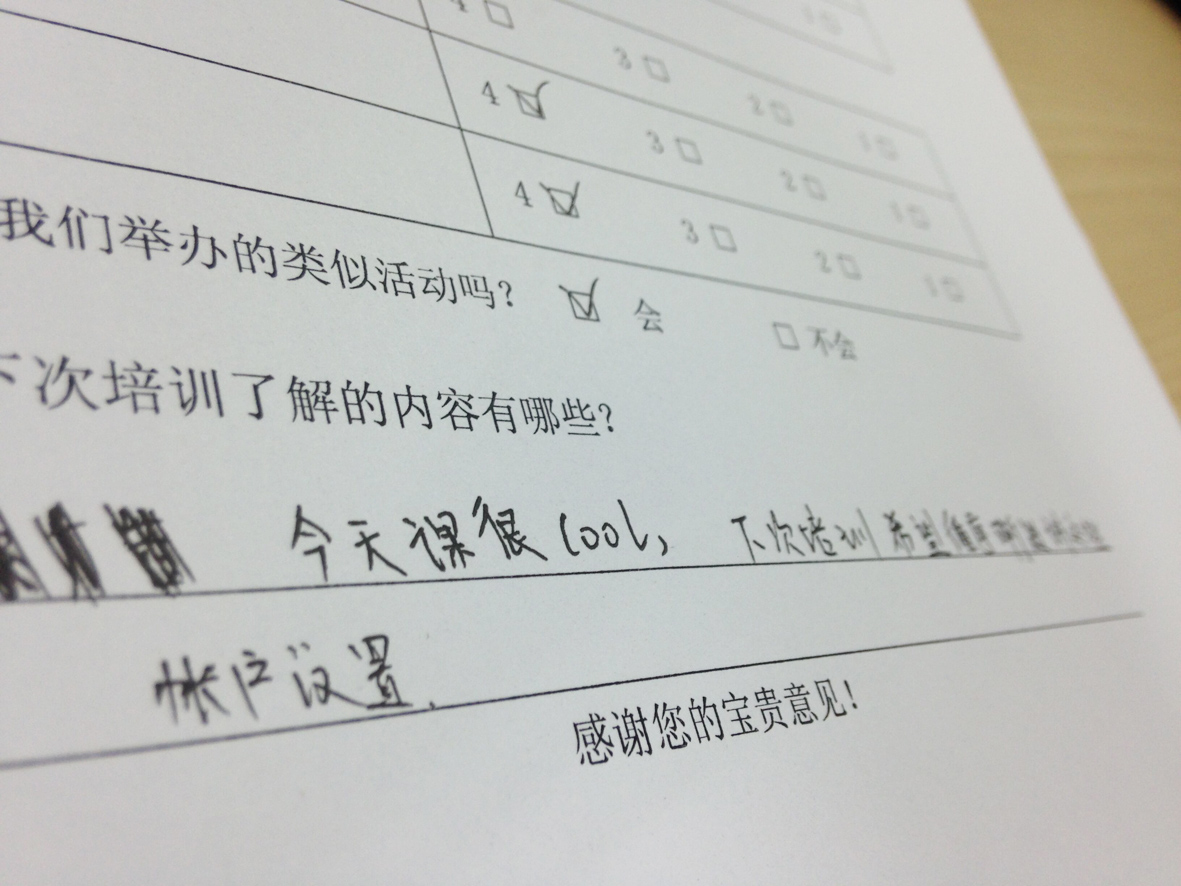 4□
1□
3□
4☑ 2□
3□ 1□
4☑ 2□
3□ 1□
2□
1□
我们举办的类似活动吗? ☑ 会 □ 不会
下次培训了解的内容有哪些?
今天课很cool, 下次培训希望
帐户设置.
感谢您的宝贵意见!